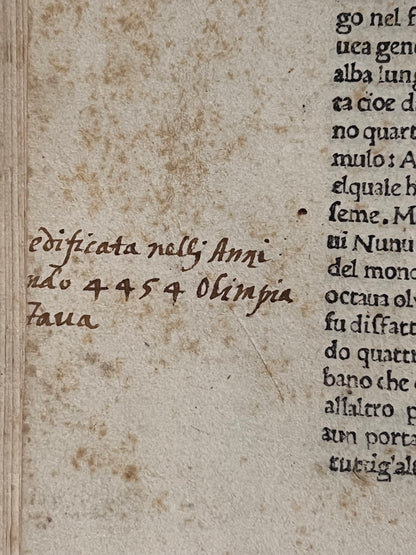 edificata nellj Anni
ndo 4454 Olimpia
taua
go nel f
uea gen
alba lung
ta cioe d
no quart
mulo: A
elquale h
seme. M
ui Nunu
del mond
octaua ol
fu disfatt
do quattr
bano che
allaltro p
aun porta
tuttig'al